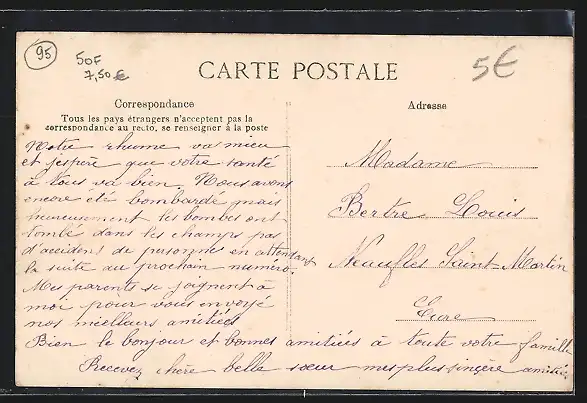 95
50F
7,50€
5€
CARTE POSTALE
Correspondance
Tous les pays étrangers n'acceptent pas la
correspondance au recto, se renseigner à la poste
Adresse
Notre rhume va mieu
et j'espère que votre santé
à tous va bien. Nous avons
encore été bombardé mais
heureusement les bombes ont
tombé dans les champs pas
d'accident de personnes en attendant
la suite au prochain numéro.
Mes parents se joignent à
moi pour vous envoyé
nos meilleurs amitiés
Bien le bonjour et bonnes amitiés à toute votre famille
Recevez chère belle sœur mes plus sincère amitiés
Madame
Bertre Louis
Neaufles Saint-Martin
Eure